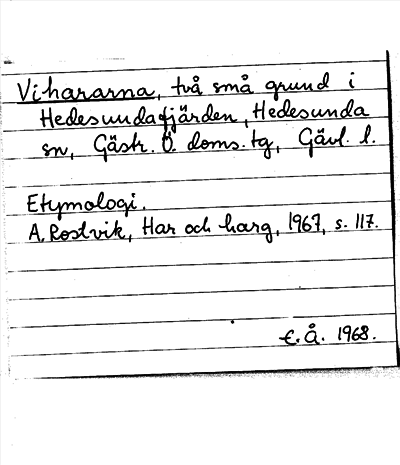 Vihararna, två små grund i
Hedesundafjärden, Hedesunda
sn, Gästr. Ö. doms. tg, Gävl. l.
Etymologi.
A. Rostvik, Har och harg, 1967, s. 117.
E. Å. 1968.